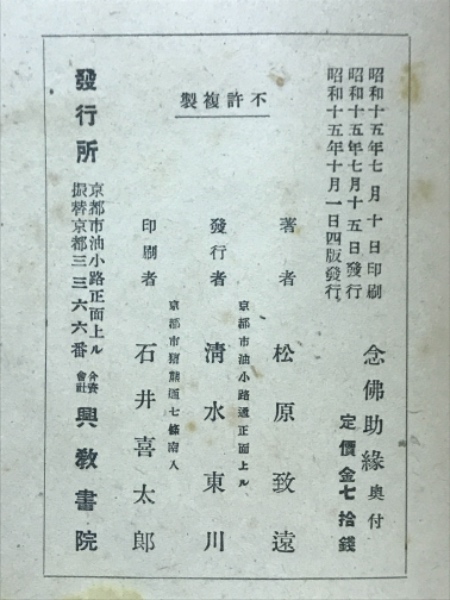 昭和十五年七月十日印刷
昭和十五年七月十五日發行
昭和十五年十月一日四版發行
念佛助緣 奥付
定價金七拾錢
不許複製
著者 松原致遠
京都市油小路通正面上ル
發行者 淸水東川
京都市猪熊通七條南入
印刷者 石井喜太郎
發行所
京都市油小路正面上ル
振替京都三三六六番
合資會社 興敎書院